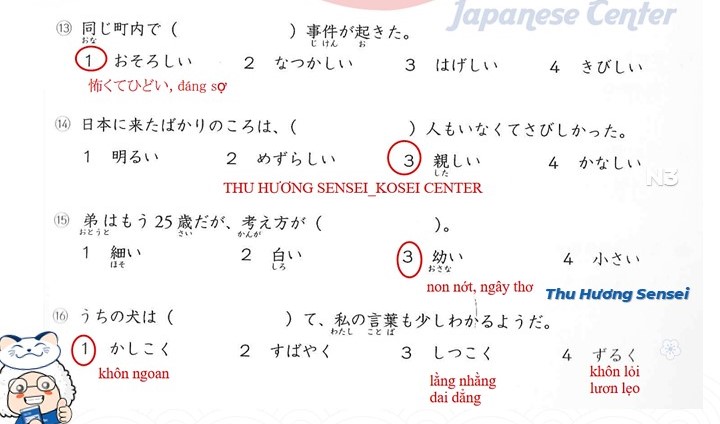 Japanese Center
⑬ 同じ町内で（　　　　　）事件が起きた。
おな じけん お
1 おそろしい 2 なつかしい 3 はげしい 4 きびしい
怖くてひどい, đáng sợ
⑭ 日本に来たばかりのころは、（　　　　　）人もいなくてさびしかった。
1 明るい 2 めずらしい 3 親しい 4 かなしい
した
N3
THU HƯƠNG SENSEI_KOSEI CENTER
⑮ 弟はもう25歳だが、考え方が（　　　　　）。
おとうと さい かんが
1 細い 2 白い 3 幼い 4 小さい
ほそ しろ おさな
non nớt, ngây thơ
Thu Hương Sensei
⑯ うちの犬は（　　　　　）て、私の言葉も少しわかるようだ。
わたし ことば
1 かしこく 2 すばやく 3 しつこく 4 ずるく
khôn ngoan
lằng nhằng
dai dẳng
khôn lỏi
lươn lẹo